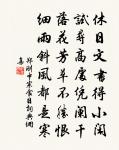 休日文書得小閑
試尋高處憑闌干
落花芳草不勝恨
細雨斜風都是寒
州中寒食日